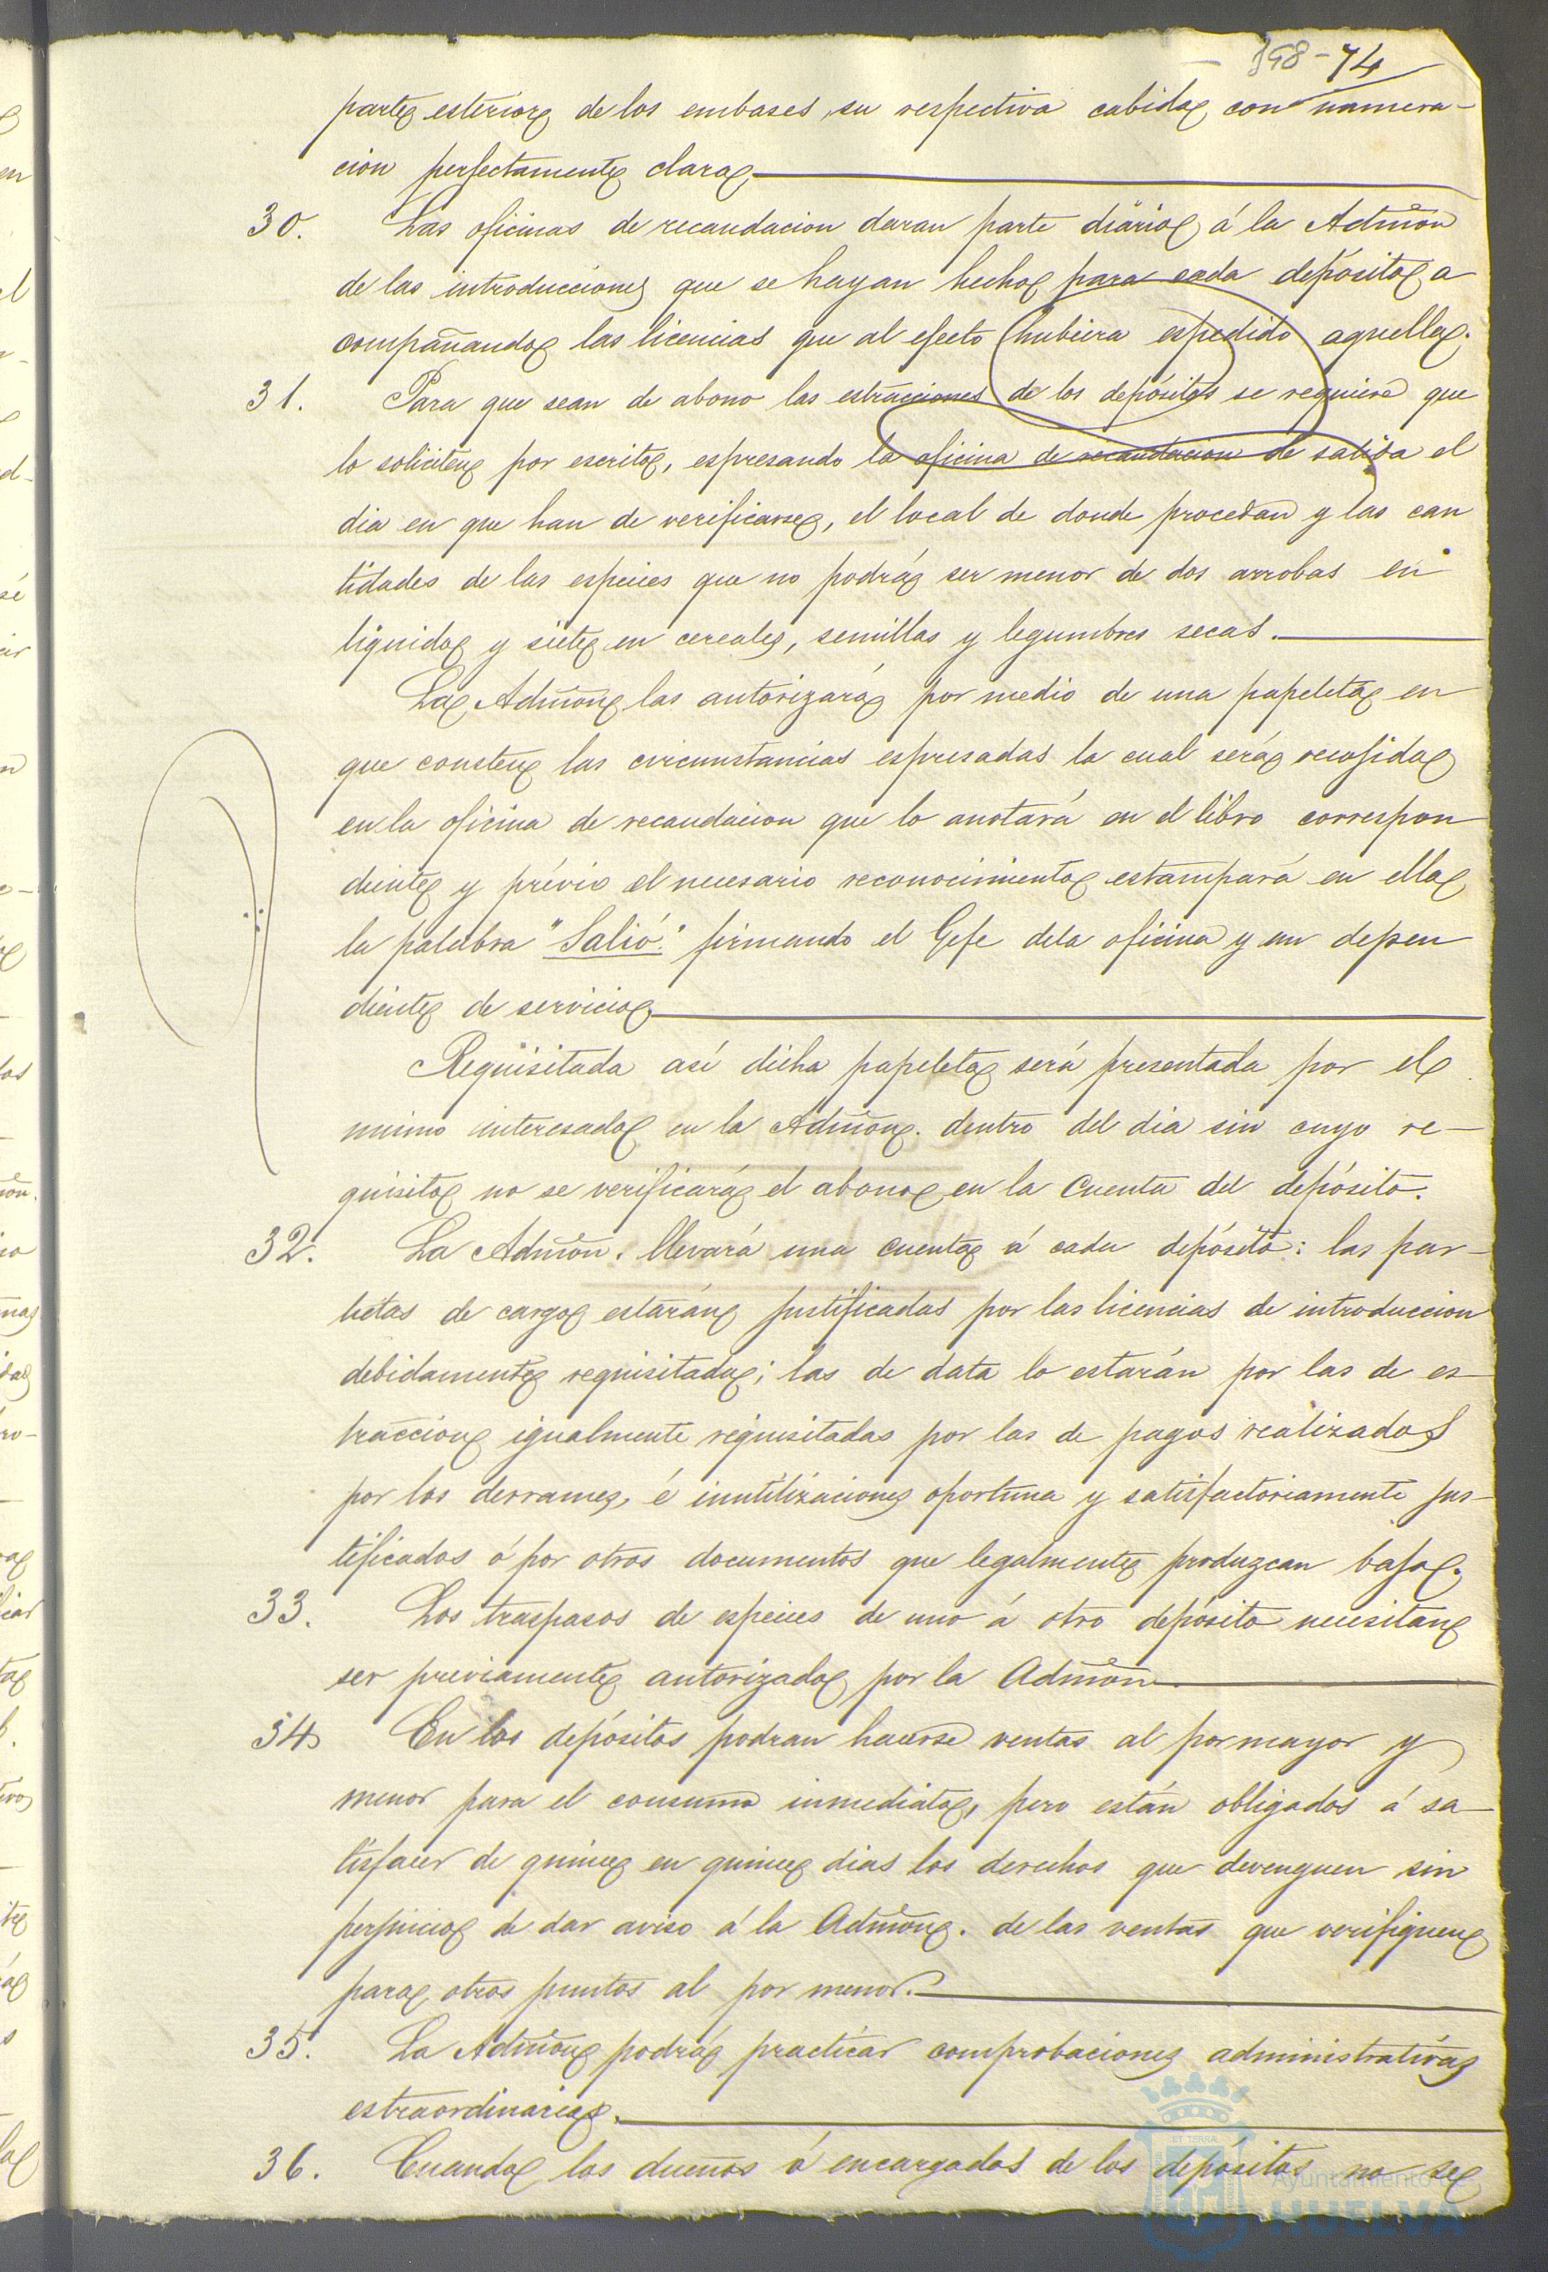 398-74
parte esterior de los embases, su respectiva cabida con numera-
cion perfectamente clara
30. Las oficinas de recaudacion daran parte diario á la Admon
de las introducciones que se hayan hecho para cada depósito a
compañando las licencias que al efecto hubiera espedido aquella.
31. Para que sean de abono las estracciones de los depósitos se requiere que
lo soliciten por escrito, espresando la oficina de recaudacion de salida el
dia en que han de verificarse, el local de donde procedan y las can
tidades de las especies que no podrá ser menor de dos arrobas en
liquido y siete en cereales, semillas y legumbres secas.
La Admon las autorizará por medio de una papeleta en
que consten las circunstancias espresadas la cual será recojida
en la oficina de recaudacion que lo anotará en el libro correspon
diente y prévio el necesario reconocimiento estampará en ella
la palabra "Salió." firmando el Gefe dela oficina y un depen
diente de servicio
Requisitada así dicha papeleta será presentada por el
mismo interesado en la Admon. dentro del dia sin cuyo re-
quisito no se verificará el abono en la Cuenta del depósito.
32. La Admon. llevará una cuenta á cada depósito: las par-
tidas de cargo estarán justificadas por las licencias de introduccion
debidamente requisitada; las de data lo estarán por las de es-
traccion igualmente requisitadas por las de pagos realizados
por los derrames, é inutilizaciones oportuna y satisfactoriamente jus-
tificados ó por otros documentos que legalmente produzcan baja.
33. Los traspasos de especies de uno á otro depósito necesitan
ser previamente autorizado por la Admon.
34 En los depósitos podran hacerse ventas al por mayor y
menor para el consumo inmediato, pero están obligados á sa-
tisfacer de quince en quince dias los derechos que devenguen sin
perjuicio de dar aviso á la Admon. de las ventas que verifiquen
para otros puntos al por menor.
35. La Admon podrá practicar comprobaciones administrativas
estraordinarias.
36. Cuando los dueños ó encargados de los depósitos no se
Ayuntamiento de
HUELVA